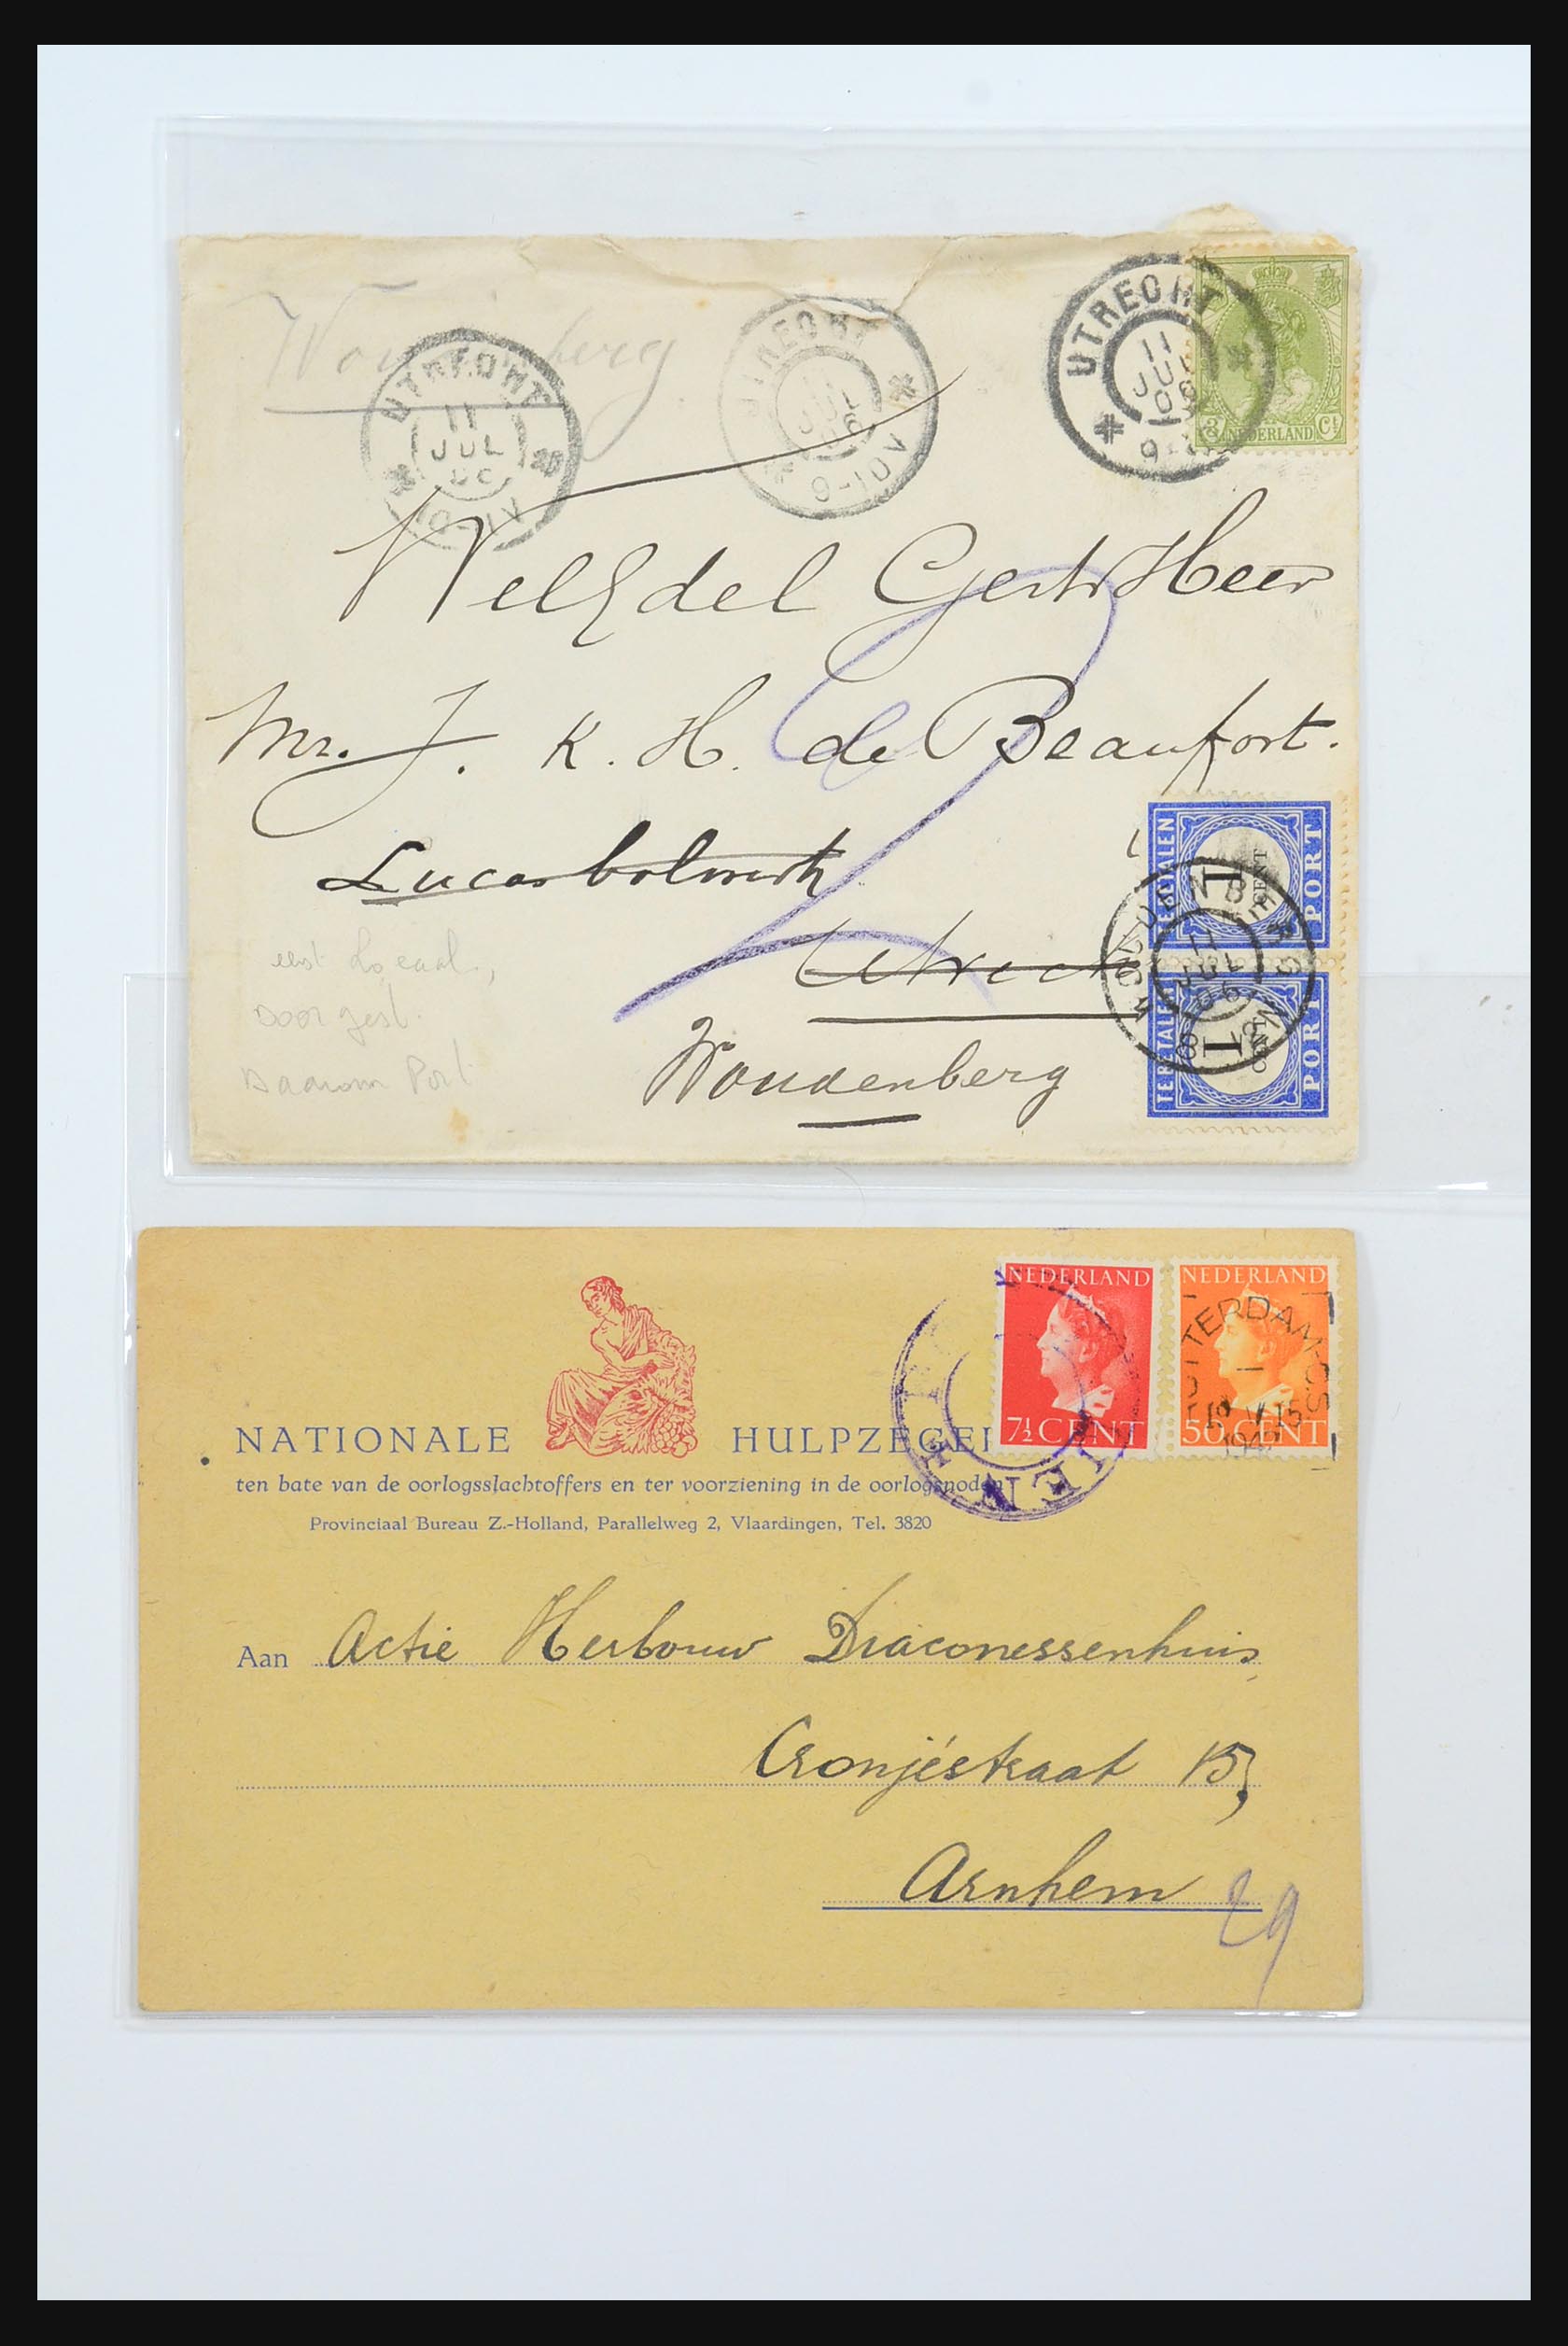 Woudenberg
UTRECHT
11
JUL
10-11V
UTRECHT
11
JUL
06
9-10V
UTRECHT
11
JUL
06
3 NEDERLAND Ct
WelEdel Gestr Heer
Mr. J. K. H. de Beaufort.
Lucasbolwerk
Utrecht
Woudenberg
eerst Locaal,
Doorgest.
Daarom Port
TE BETALEN
1
CENT
PORT
WOUDENBERG
11
JUL
06
TE BETALEN
1
CENT
PORT
NEDERLAND
7½ CENT
NEDERLAND
50 CENT
ROTTERDAM C.S
15
NATIONALE HULPZEGEL
ten bate van de oorlogsslachtoffers en ter voorziening in de oorlogsnoden
Provinciaal Bureau Z.-Holland, Parallelweg 2, Vlaardingen, Tel. 3820
Aan Actie Herbouw Diaconessenhuis
Cronjéstraat 15,
Arnhem
29